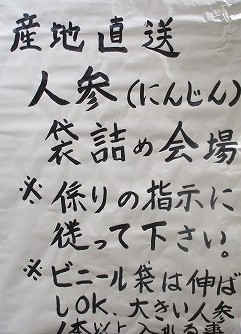 産地直送
人参(にんじん)
袋詰め会場
※係りの指示に
従って下さい。
※ビニール袋は伸ば
しOK、大きい人参
1本以上入れる事